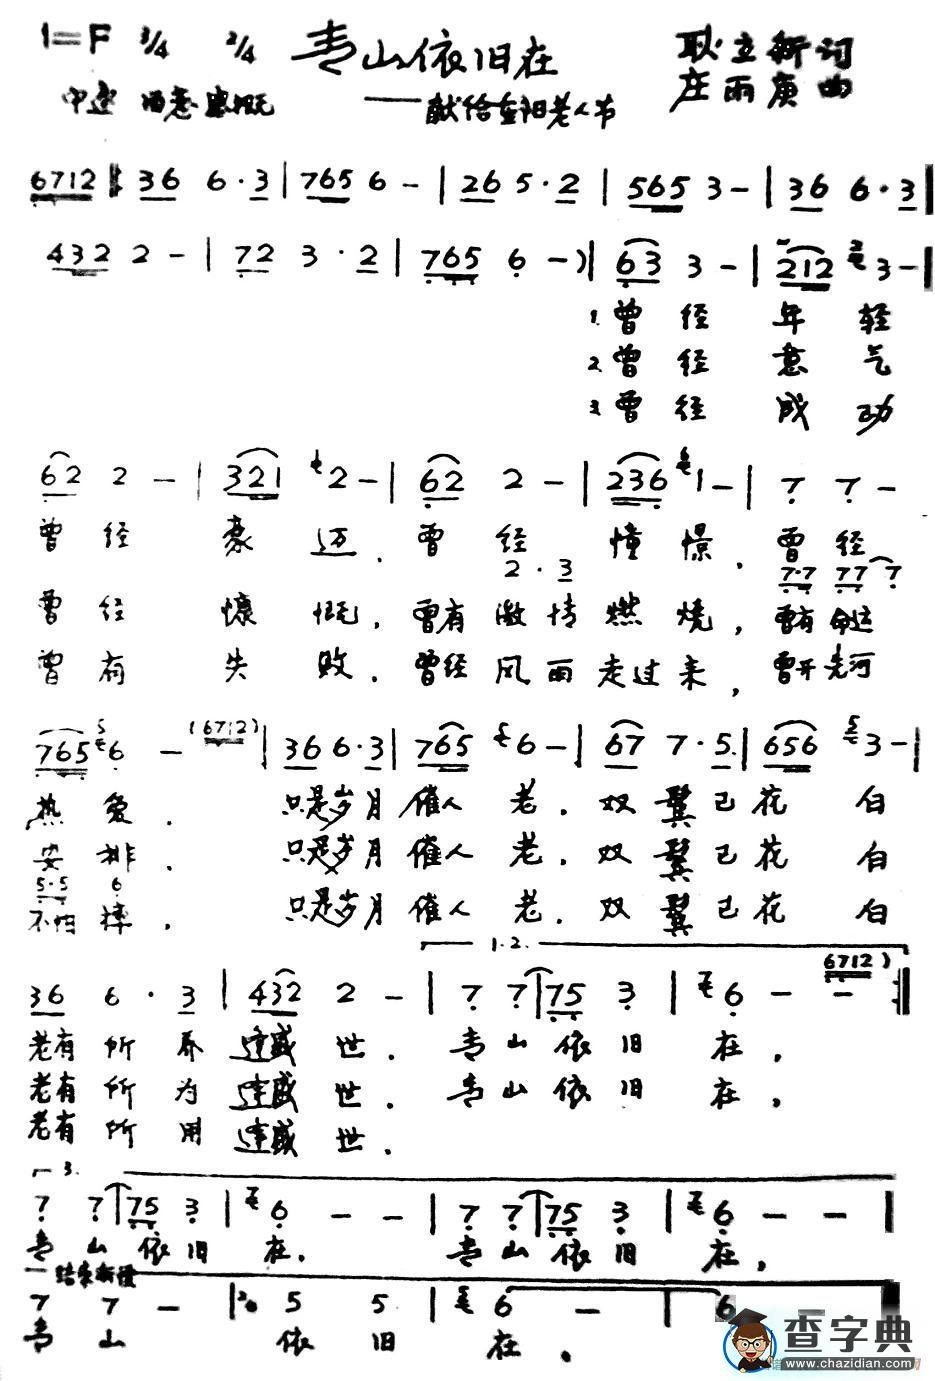 1=F 3/4 2/4 青山依旧在 耿立新词
中速 感慨 ——献给重阳老人节 庄雨庚曲
6712 ‖ 36 6·3 | 765 6 - | 26 5·2 | 565 3 - | 36 6·3 |
432 2 - | 72 3·2 | 765 6 -) | 63 3 - | 212 3 - |
1.曾经年轻
2.曾经意气
3.曾经成功
62 2 - | 321 2 - | 62 2 - | 236 1 - | 7 7 -
曾经豪迈.曾经憧憬,曾经
2·3 7·7 77 7
曾经慷慨,曾有激情燃烧,曾有命运
曾有失败.曾经风雨走过来,曾开先河
765 5 6 - (6712) | 36 6·3 | 765 6 - | 67 7·5 | 656 5 3 - |
热爱.只是岁月催人老.双鬓已花白
安排.只是岁月催人老.双鬓已花白
5·5 6
不怕摔.只是岁月催人老.双鬓已花白
1.2.
36 6·3 | 432 2 - | 7 7 | 75 3 | 6 - - 6712)
老有所养逢盛世.青山依旧在,
老有所为逢盛世.青山依旧在,
老有所用逢盛世.
3.
7 7 | 75 3 | 6 - - | 7 7 | 75 3 | 6 - -
青山依旧在.青山依旧在,
结束渐慢
7 7 - | 2/4 5 5 | 6 - | 6
青山依旧在。
查字典
www.chazidian.com